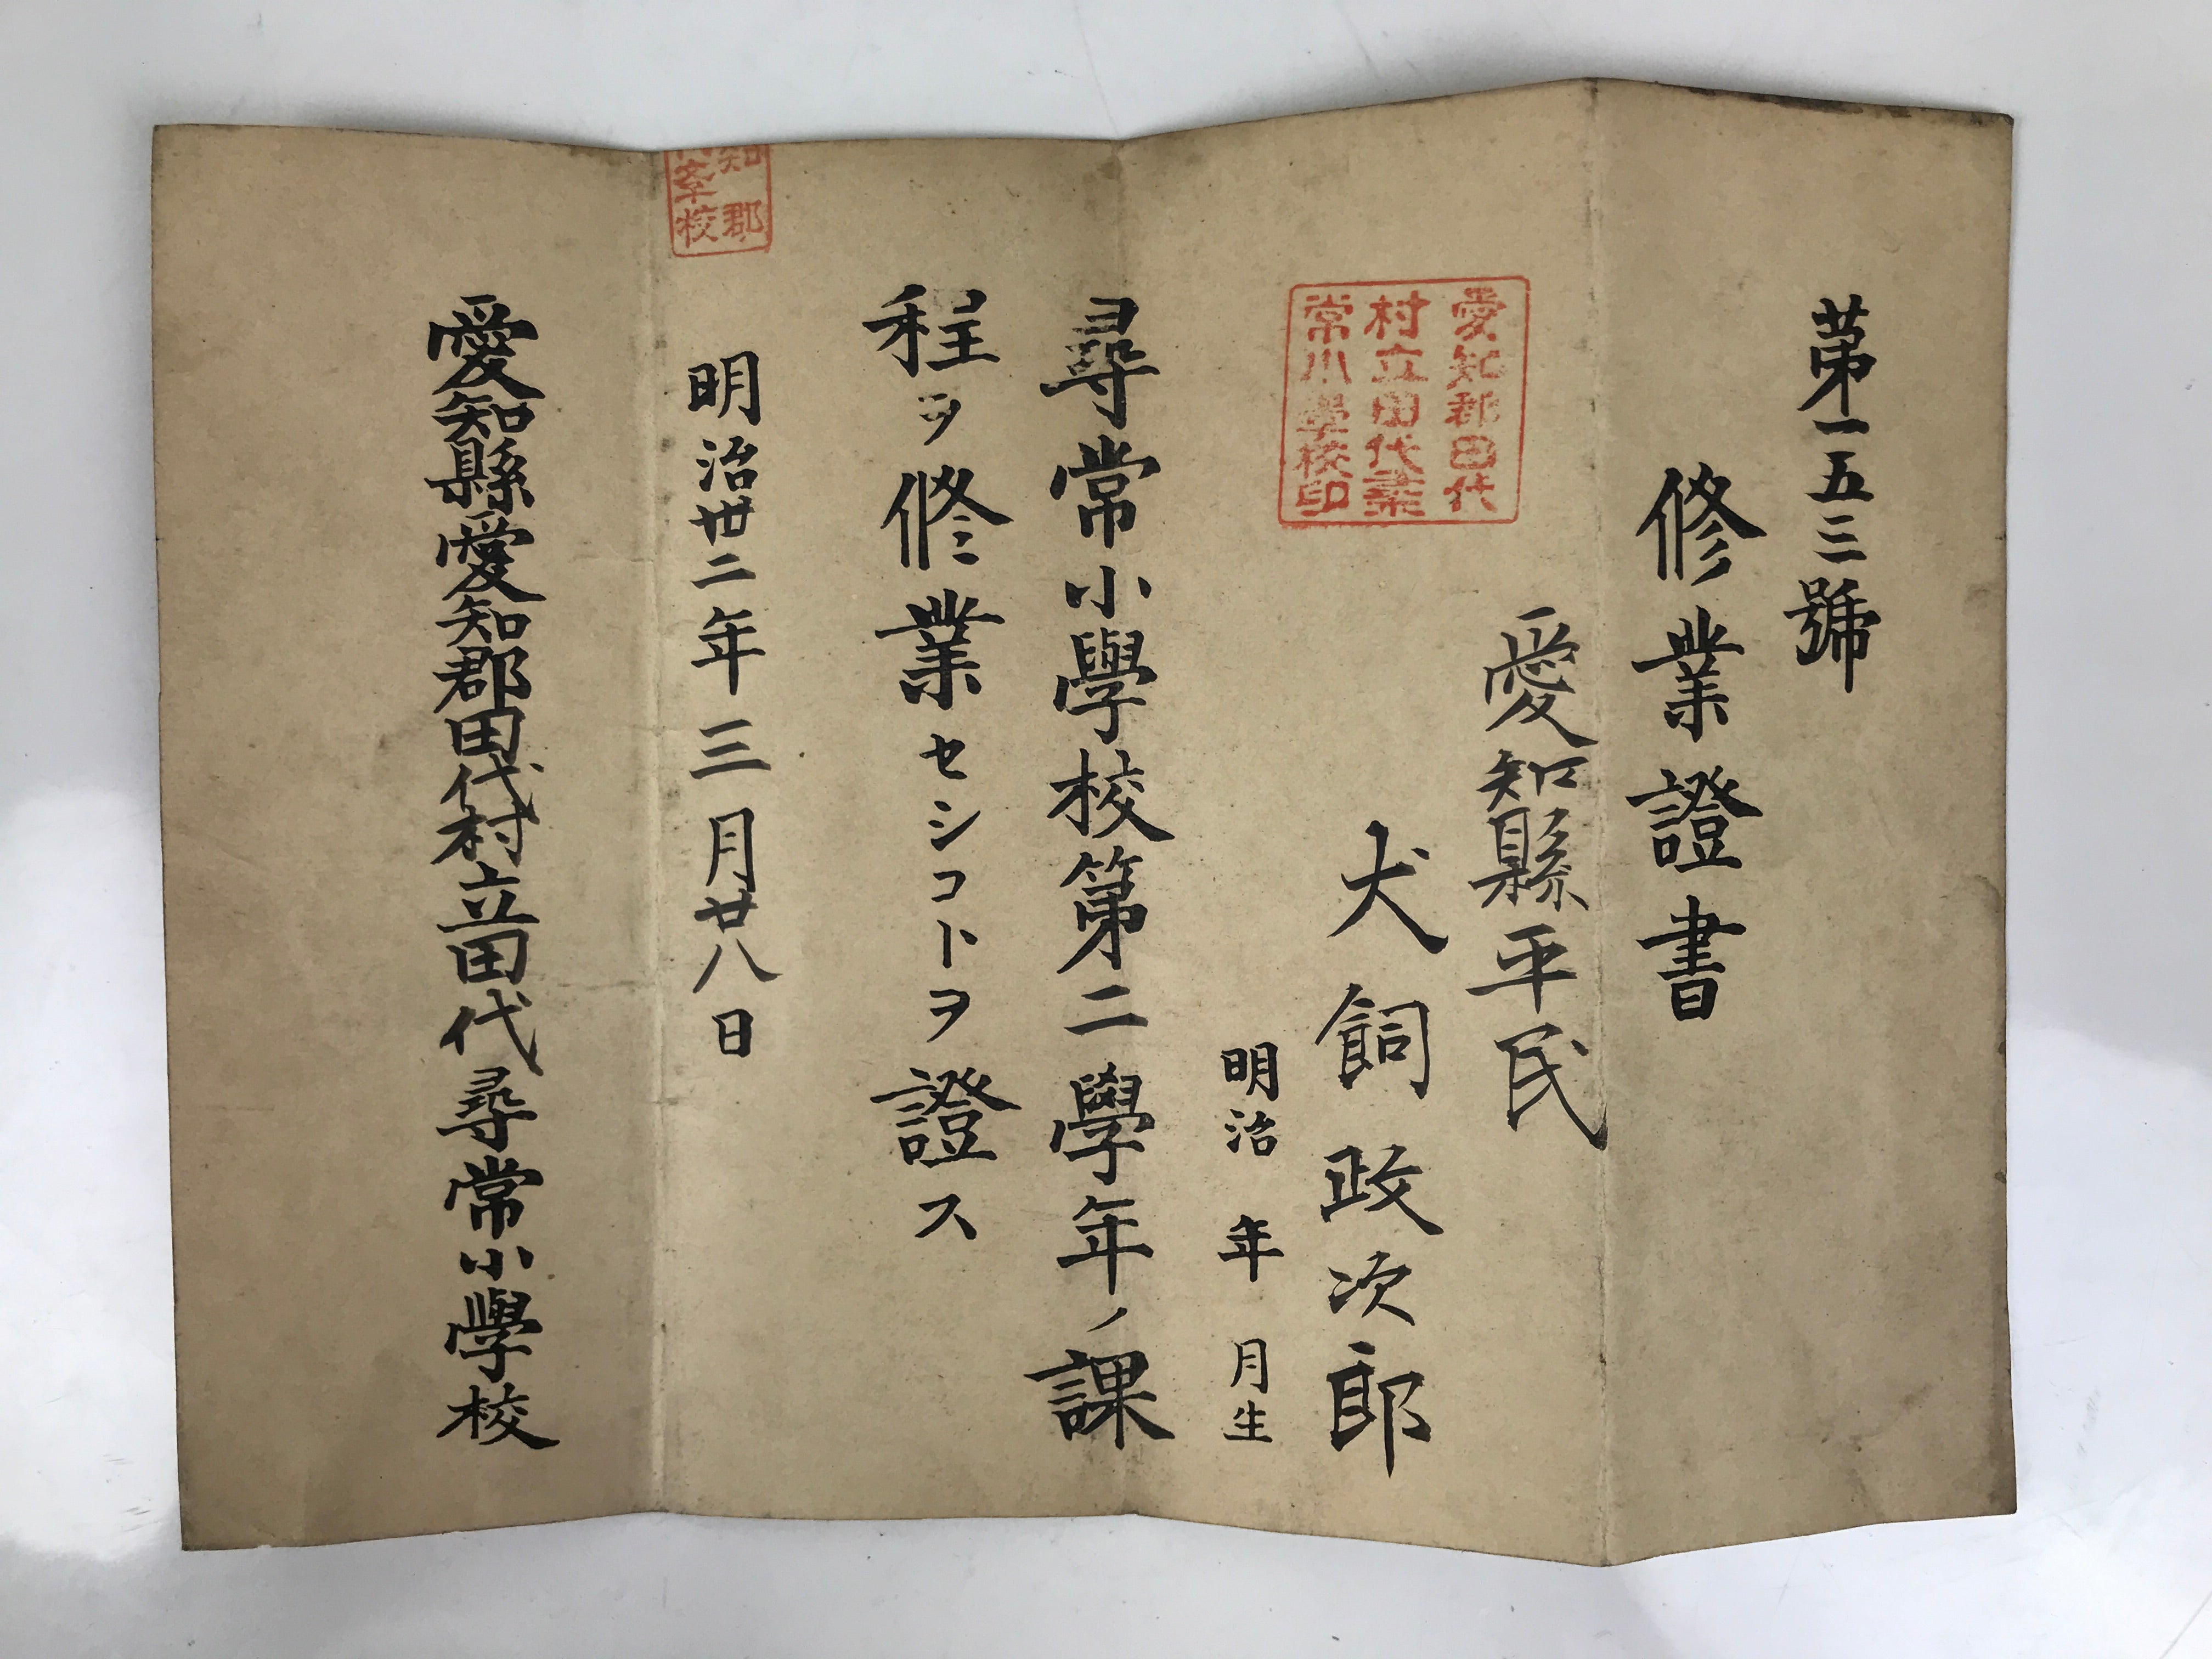 第一五三號
修業證書
愛知縣平民
犬飼政次郎
明治　年　月生
尋常小學校第二學年ノ課
程ヲ修業セシコトヲ證ス
明治卅二年三月廿八日
愛知縣愛知郡田代村立田代尋常小學校
愛知郡田代
村立田代尋
常小學校印
知郡
校